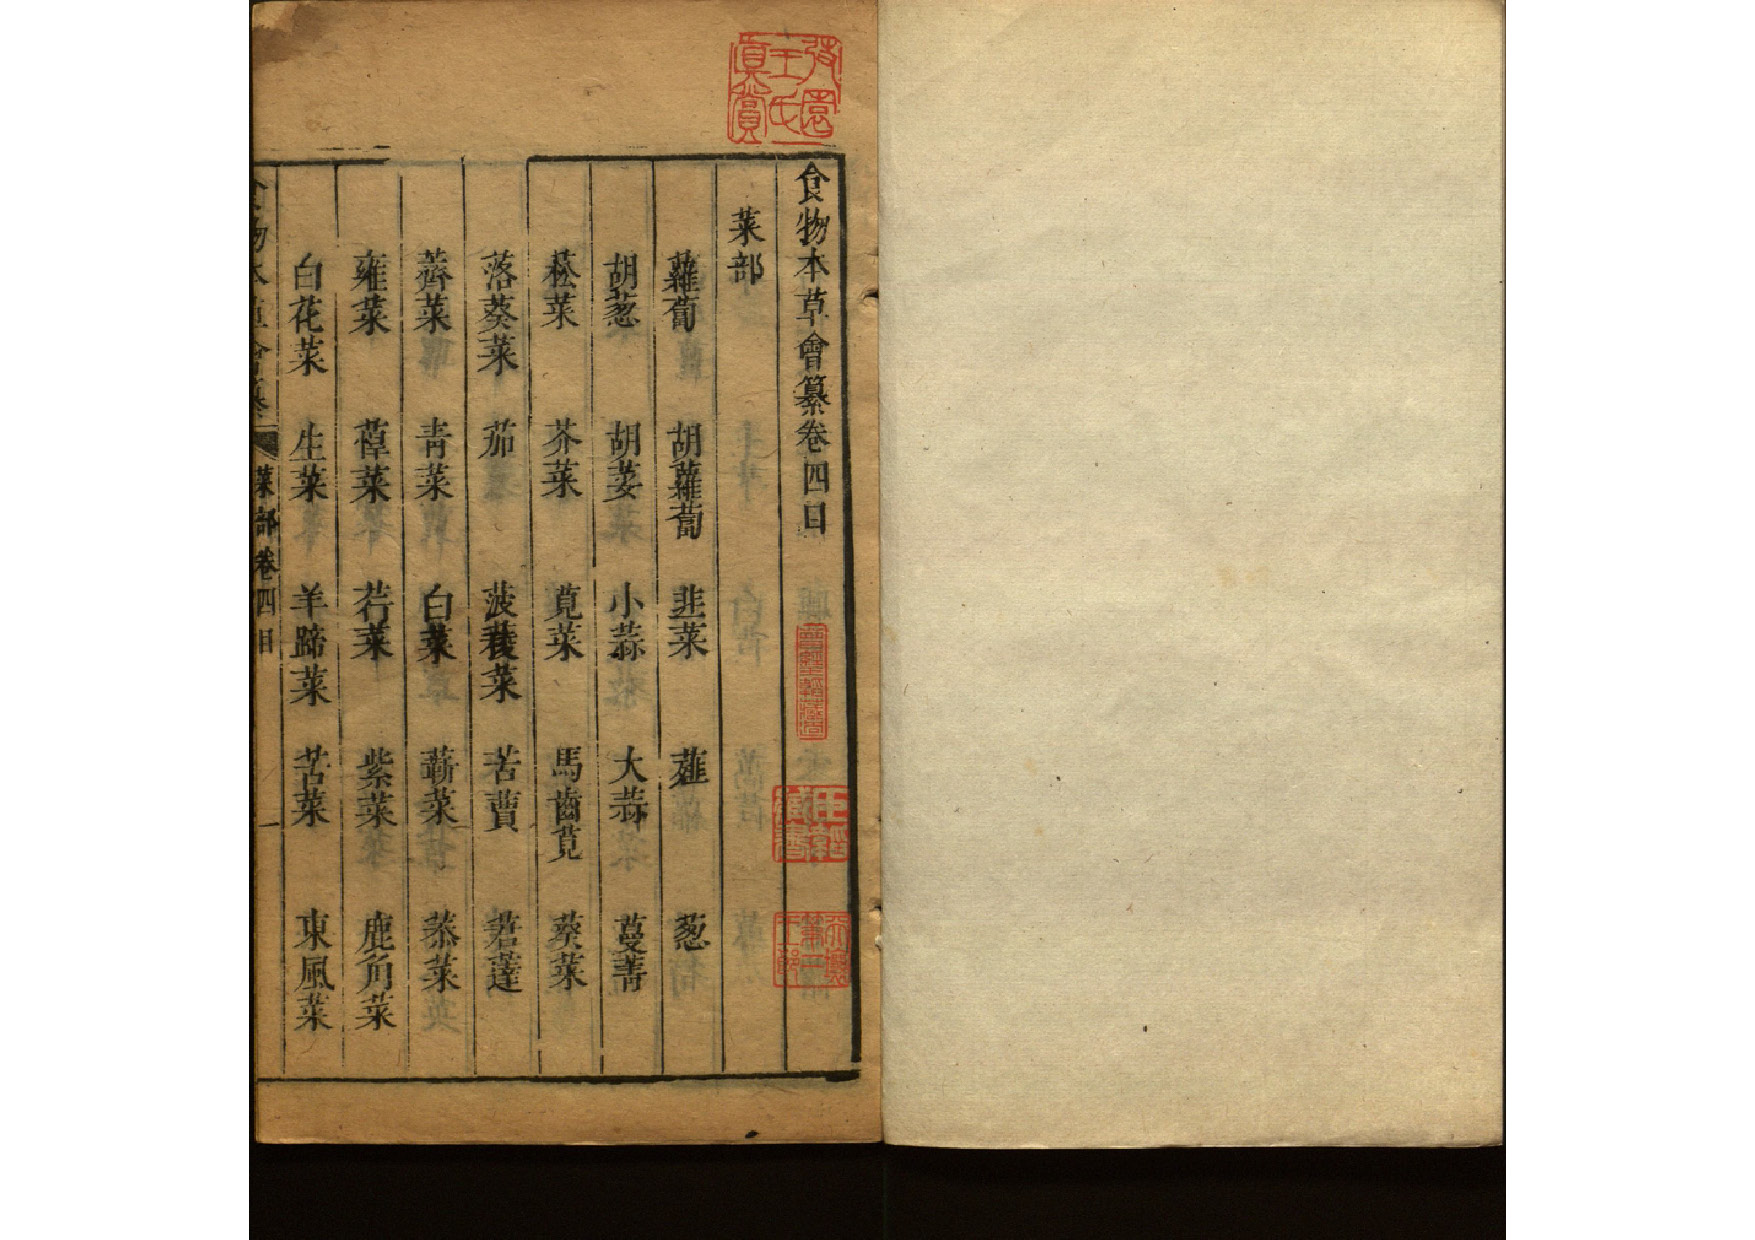 食物本草會纂卷四目
菜部
蘿蔔 胡蘿蔔 韭菜 薤 葱
胡葱 胡荽 小蒜 大蒜 蔓菁
菘菜 芥菜 莧菜 馬齒莧 葵菜
落葵菜 茄 菠薐菜 苦蕒 莙薘
薺菜 青菜 白菜 蘄菜 菾菜
蕹菜 蔊菜 荇菜 紫菜 鹿角菜
白花菜 生菜 羊蹄菜 苦菜 東風菜
食物本草會纂 菜部卷四目 一
眞賞